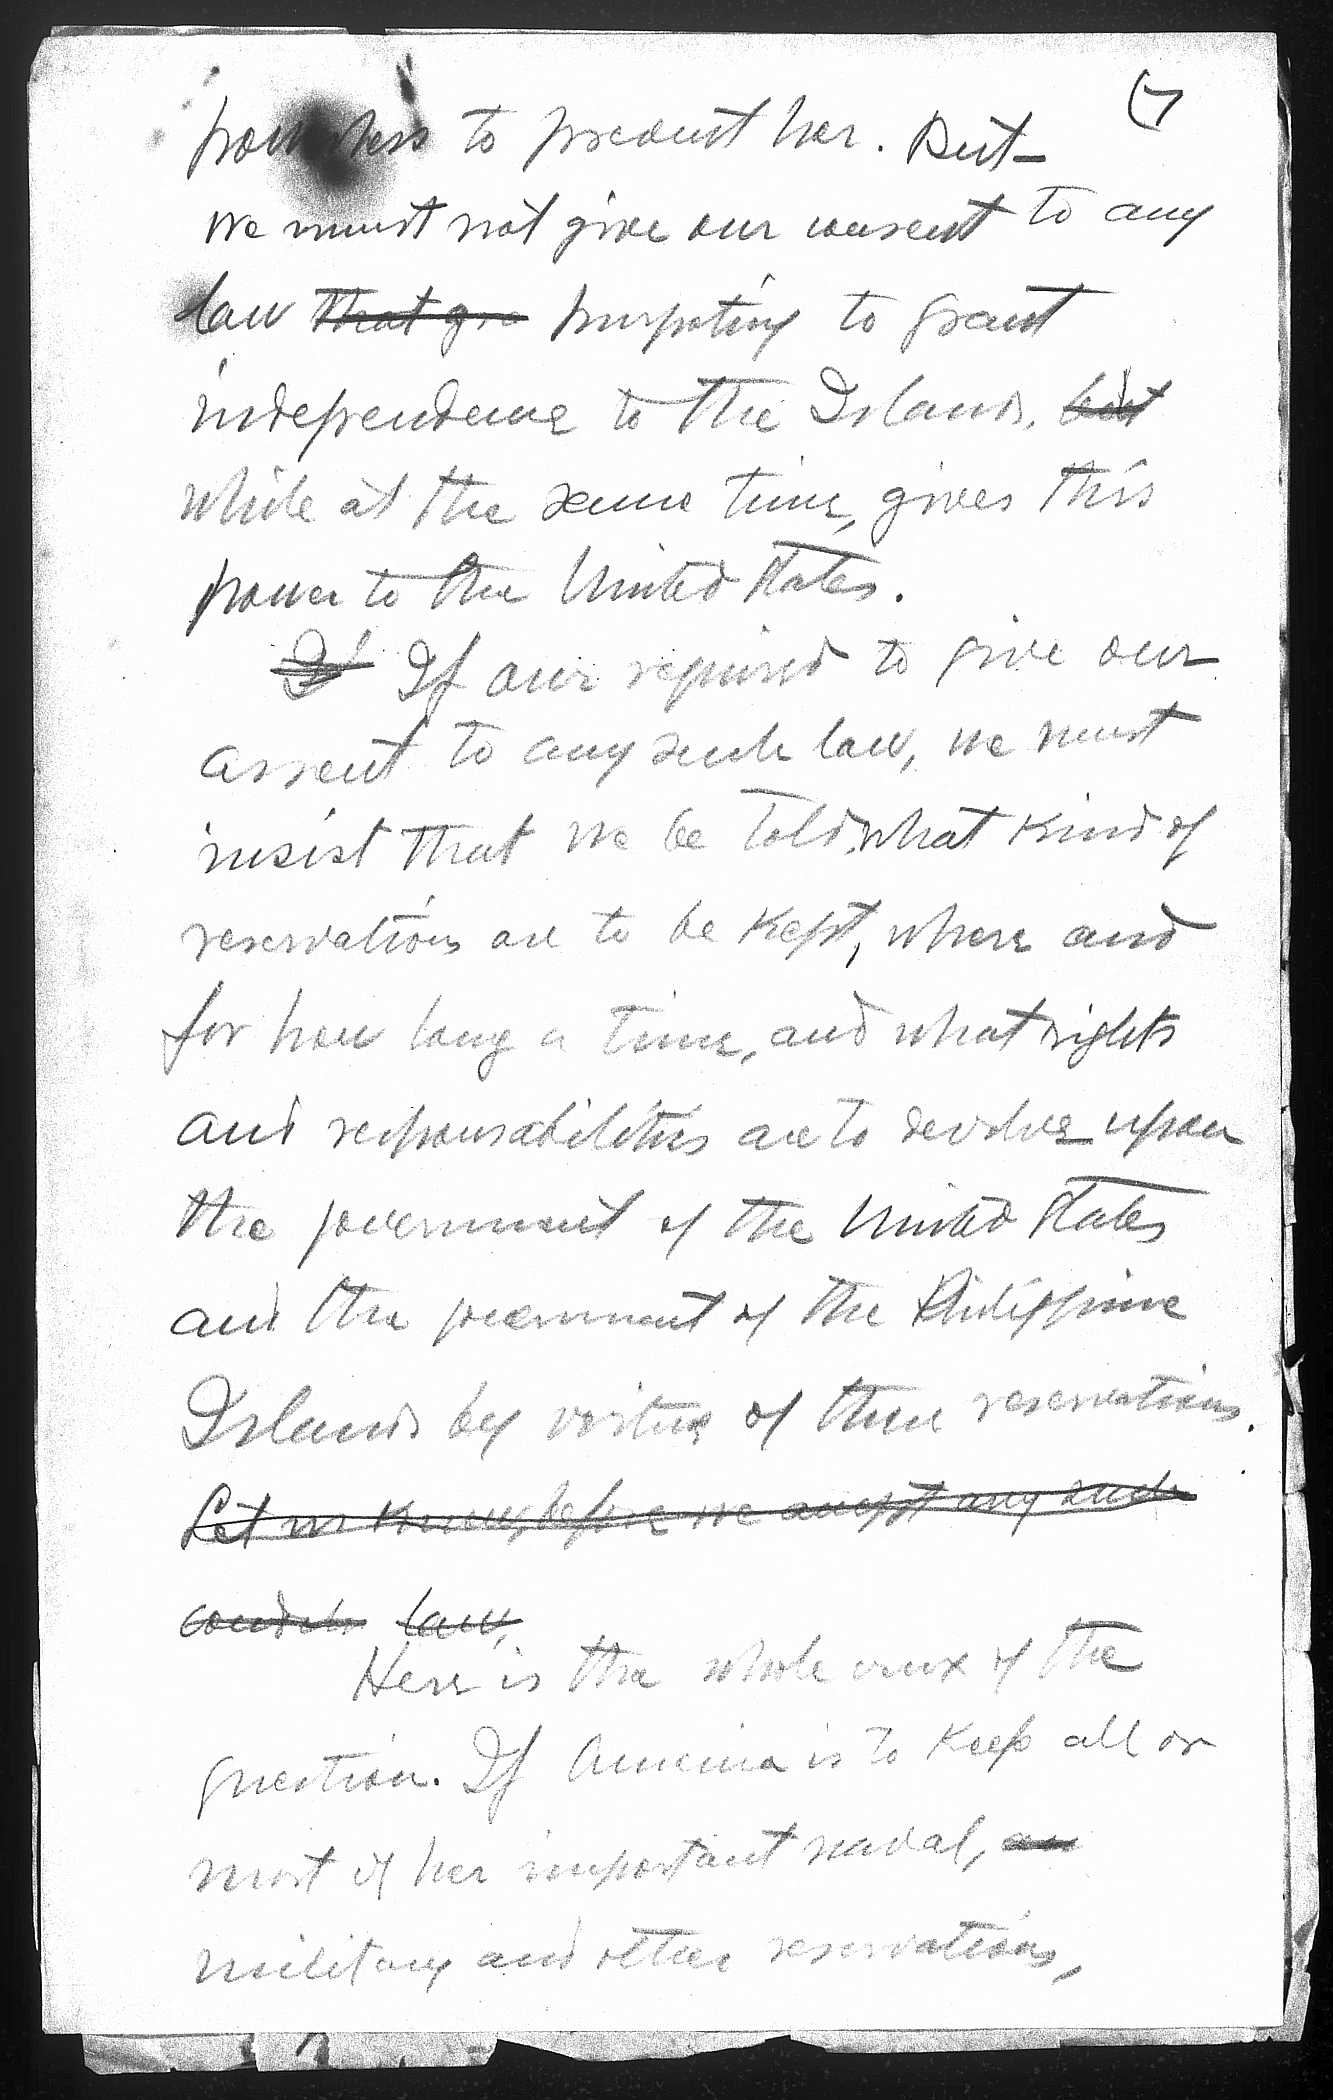 7
powerless to prevent her. But
we must not give our consent to any
law that gra purpoting to grant
independence to the Islands, but
while at the same time, gives this
power to the United States.
If our required to give our
assent to any such law, we must
insist that we be told, what kind of
reservations are to be kept, where and
for how long a time, and what rights
and responsabilities are to devolve upon
the government of the United States
and the government of the Philippine
Islands by virtue of these reservations.
Let us know, before we accept any such
law,
Here is the whole crux of the
question. If America is to keep all or
most of her important naval, an
military and other reservations,